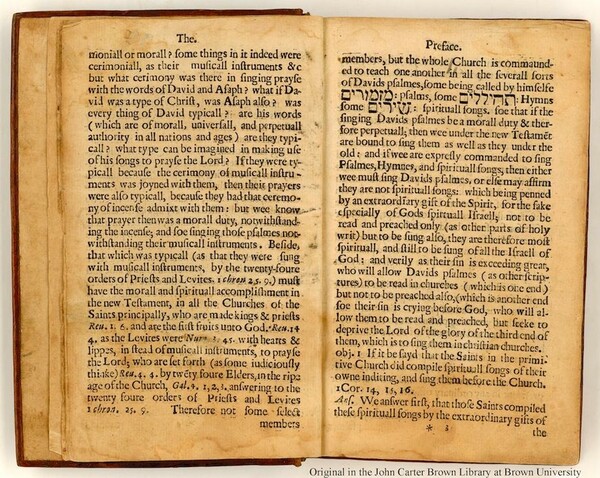 The.
moniall or morall? some things in it indeed were
cerimoniall, as their musicall instruments &c
but what cerimony was there in singing prayse
with the words of David and Asaph? what if Da-
vid was a type of Christ, was Asaph also? was
every thing of David typicall? are his words
(which are of morall, universall, and perpetuall
authority in all nations and ages) are they typi-
call? what type can be imagined in making use
of his songs to prayse the Lord? If they were ty-
picall because the cerimony of musicall instru-
ments was joyned with them, then their prayers
were also typicall, because they had that ceremo-
ny of incense admixt with them: but wee know
that prayer then was a morall duty, notwithstand-
ing the incense; and soe singing those psalmes not-
withstanding their musicall instruments. Beside,
that which was typicall (as that they were sung
with musicall instruments, by the twenty-foure
orders of Priests and Levites. 1 chron 25. 9.) must
have the morall and spirituall accomplishment in
the new Testament, in all the Churches of the
Saints principally, who are made kings & priests
Reu. 1. 6. and are the first fruits unto God. Reu. 14
4. as the Levites were Num. 3. 45. with hearts &
lippes, in stead of musicall instruments, to prayse
the Lord; who are set forth (as some iudiciously
thinke) Reu. 4. 4. by twẽty foure Elders, in the ripe
age of the Church, Gal. 4. 1, 2, 3. answering to the
twenty foure orders of Priests and Levites
1 chron. 25. 9. Therefore not some select
members
Preface.
members, but the whole Church is commaund-
ed to teach one another in all the severall sorts
of Davids psalmes, some being called by himselfe
מזמורים: psalms, some תהילליםּ: Hymns
some שירים: spirituall songs. soe that if the
singing Davids psalmes be a morall duty & ther-
fore perpetuall; then wee under the new Testamẽt
are bound to sing them as well as they under the
old: and if wee are expresly commanded to sing
Psalmes, Hymnes, and spirituall songs, then either
wee must sing Davids psalmes, or else may affirm
they are not spirituall songs: which being penned
by an extraordinary gift of the Spirit, for the sake
especially of Gods spirituall Israell; not to be
read and preached only (as other parts of holy
writ) but to be sung also, they are therefore most
spirituall, and still to be sung of all the Israell of
God: and verily as their sin is exceeding great,
who will allow Davids psalmes (as other scrip-
tures) to be read in churches (which is one end)
but not to be preached also, (which is another end
soe their sin is crying before God, who will al-
low them to be read and preached, but seeke to
deprive the Lord of the glory of the third end of
them, which is to sing them in christian churches.
obj. 1 If it be sayd that the Saints in the primi-
tive Church did compile spirituall songs of their
owne inditing, and sing them before the Church.
1Cor. 14, 15, 16.
Ans. We answer first, that those Saints compiled
these spirituall songs by the extraordinary gifts of
* 3
the
Original in the John Carter Brown Library at Brown University